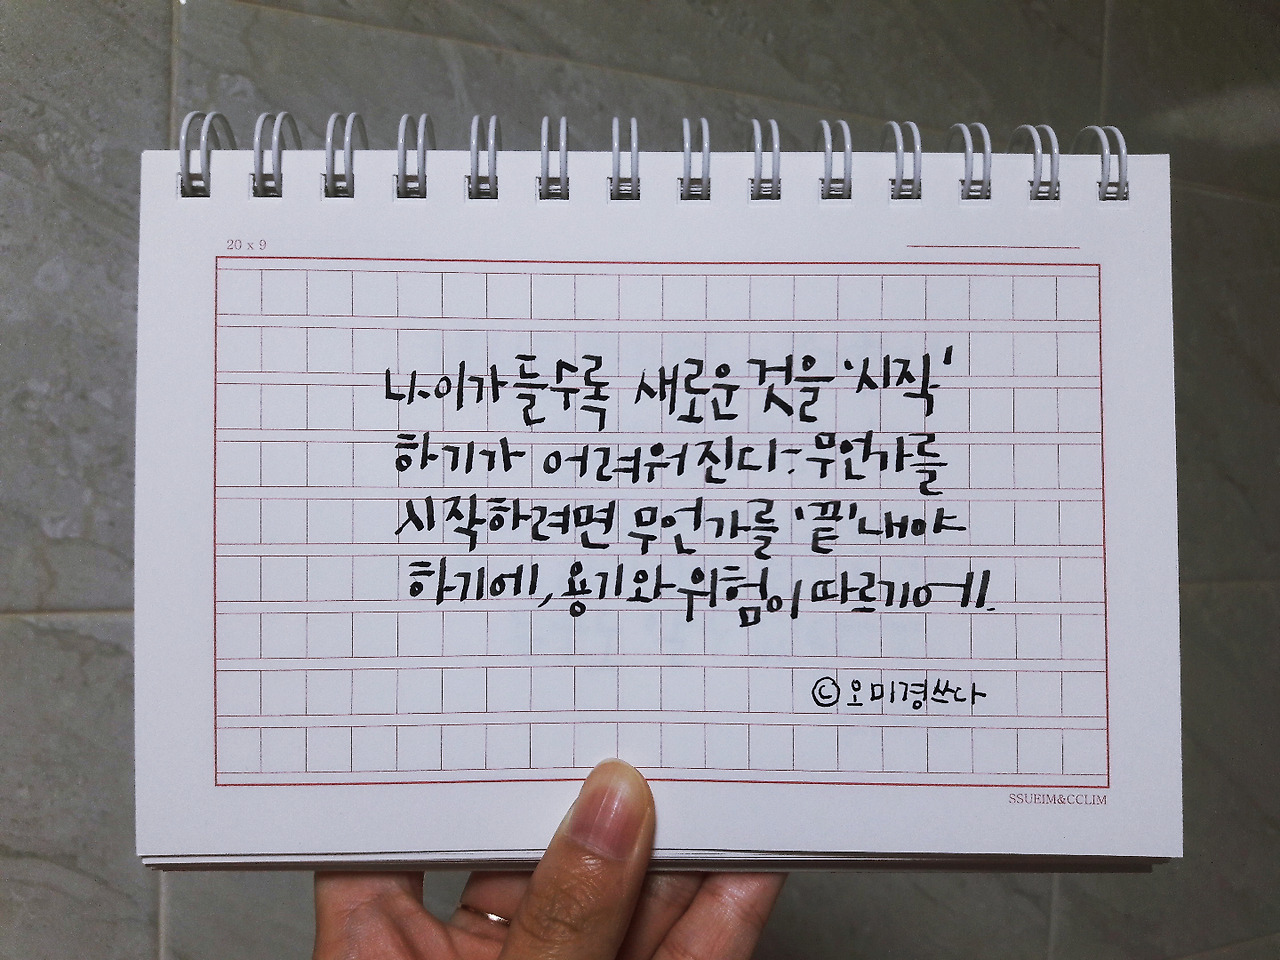 20 x 9
나이가 들수록 새로운 것을 '시작'
하기가 어려워진다: 무언가를
시작하려면 무언가를 '끝'내야
하기에, 용기와 위험이 따르기에.
ⓒ오미경쓰다
SSUEIM&CCLIM